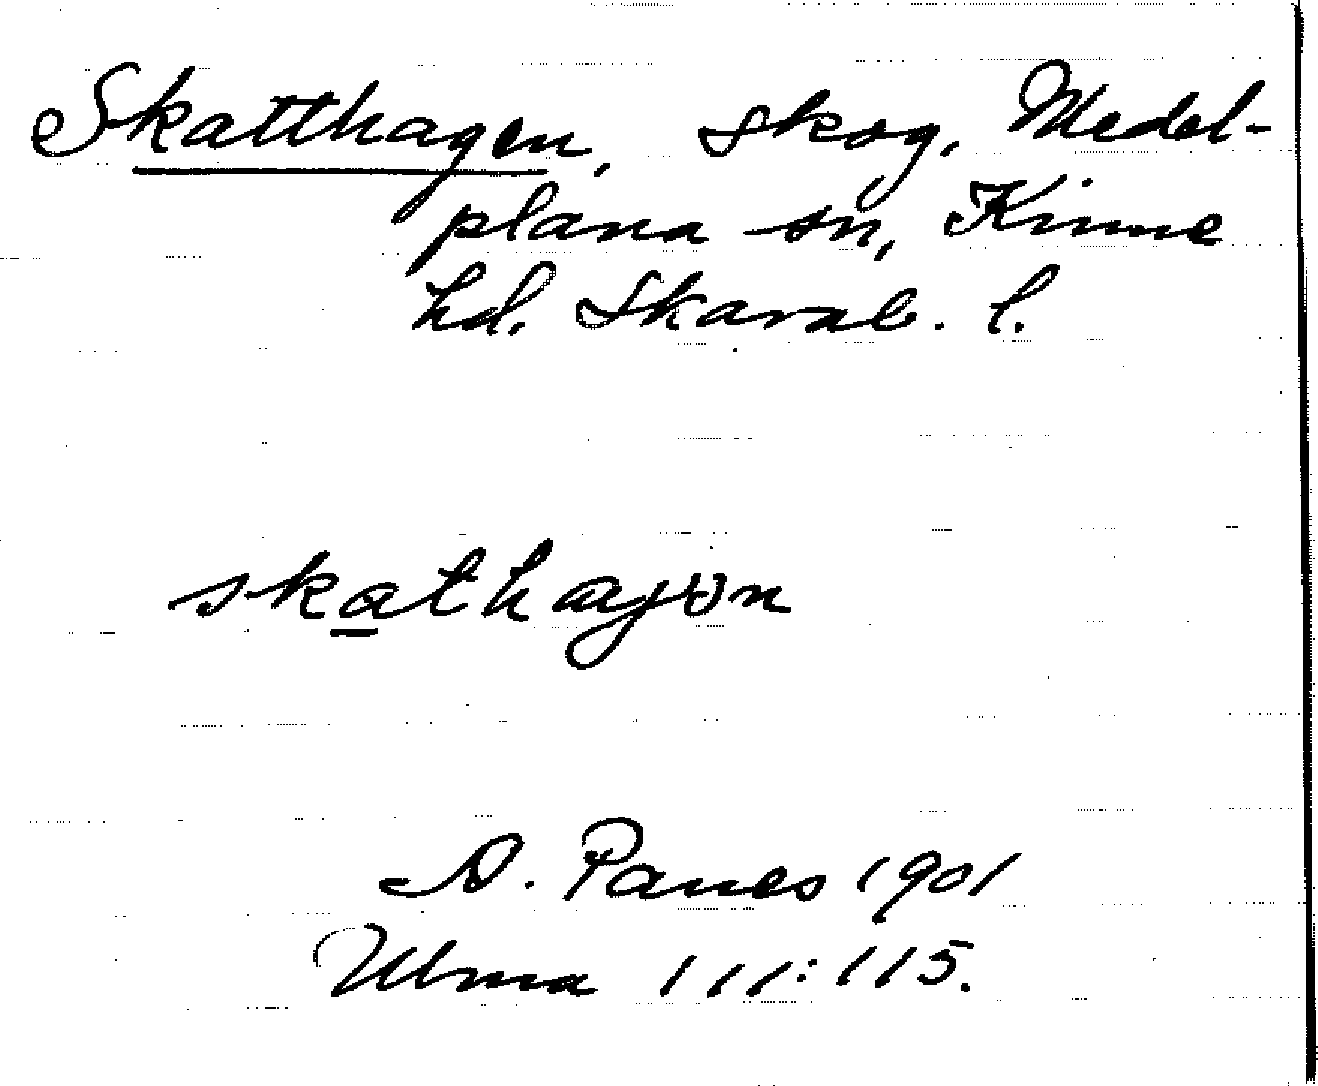 Skatthagen, skog, Medel-
plana sn, Kinne
hd. Skarab. l.
skathagen
A. Panes 1901
Ulma 111:115.